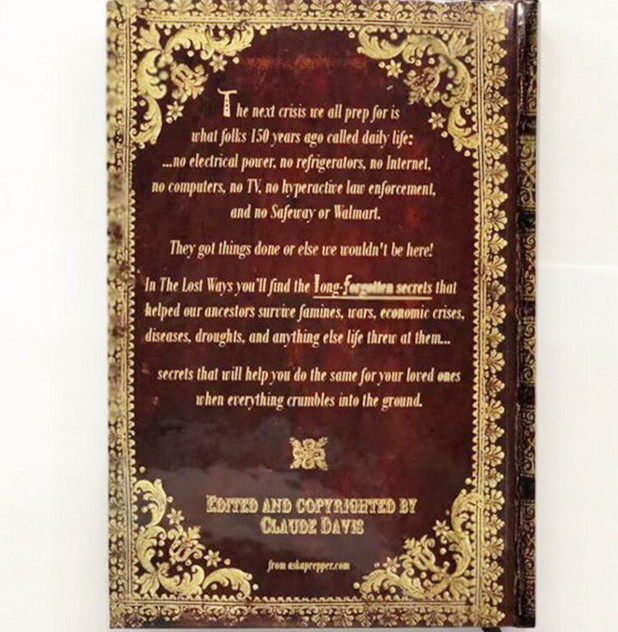 The next crisis we all prep for is
what folks 150 years ago called daily life:
...no electrical power, no refrigerators, no Internet,
no computers, no TV, no hyperactive law enforcement,
and no Safeway or Walmart.
They got things done or else we wouldn't be here!
In The Lost Ways you'll find the long-forgotten secrets that
helped our ancestors survive famines, wars, economic crises,
diseases, droughts, and anything else life threw at them...
secrets that will help you do the same for your loved ones
when everything crumbles into the ground.
EDITED AND COPYRIGHTED BY
CLAUDE DAVIS
from askaprepper.com